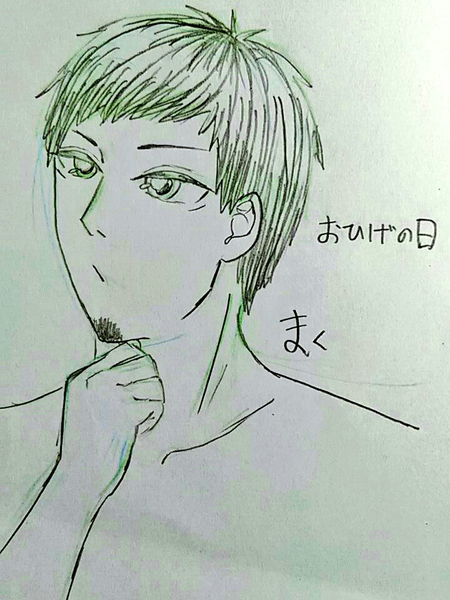 おひげの日
まく